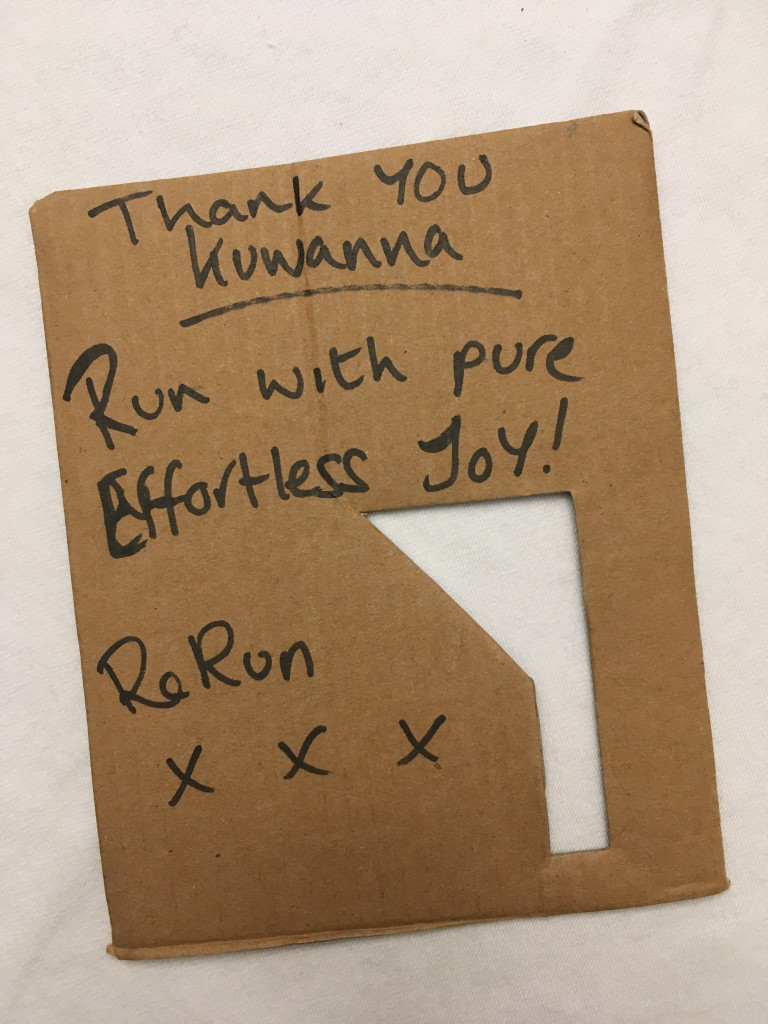 Thank YOU
Kuwanna
Run with pure
Effortless JoY!
ReRun
x x x